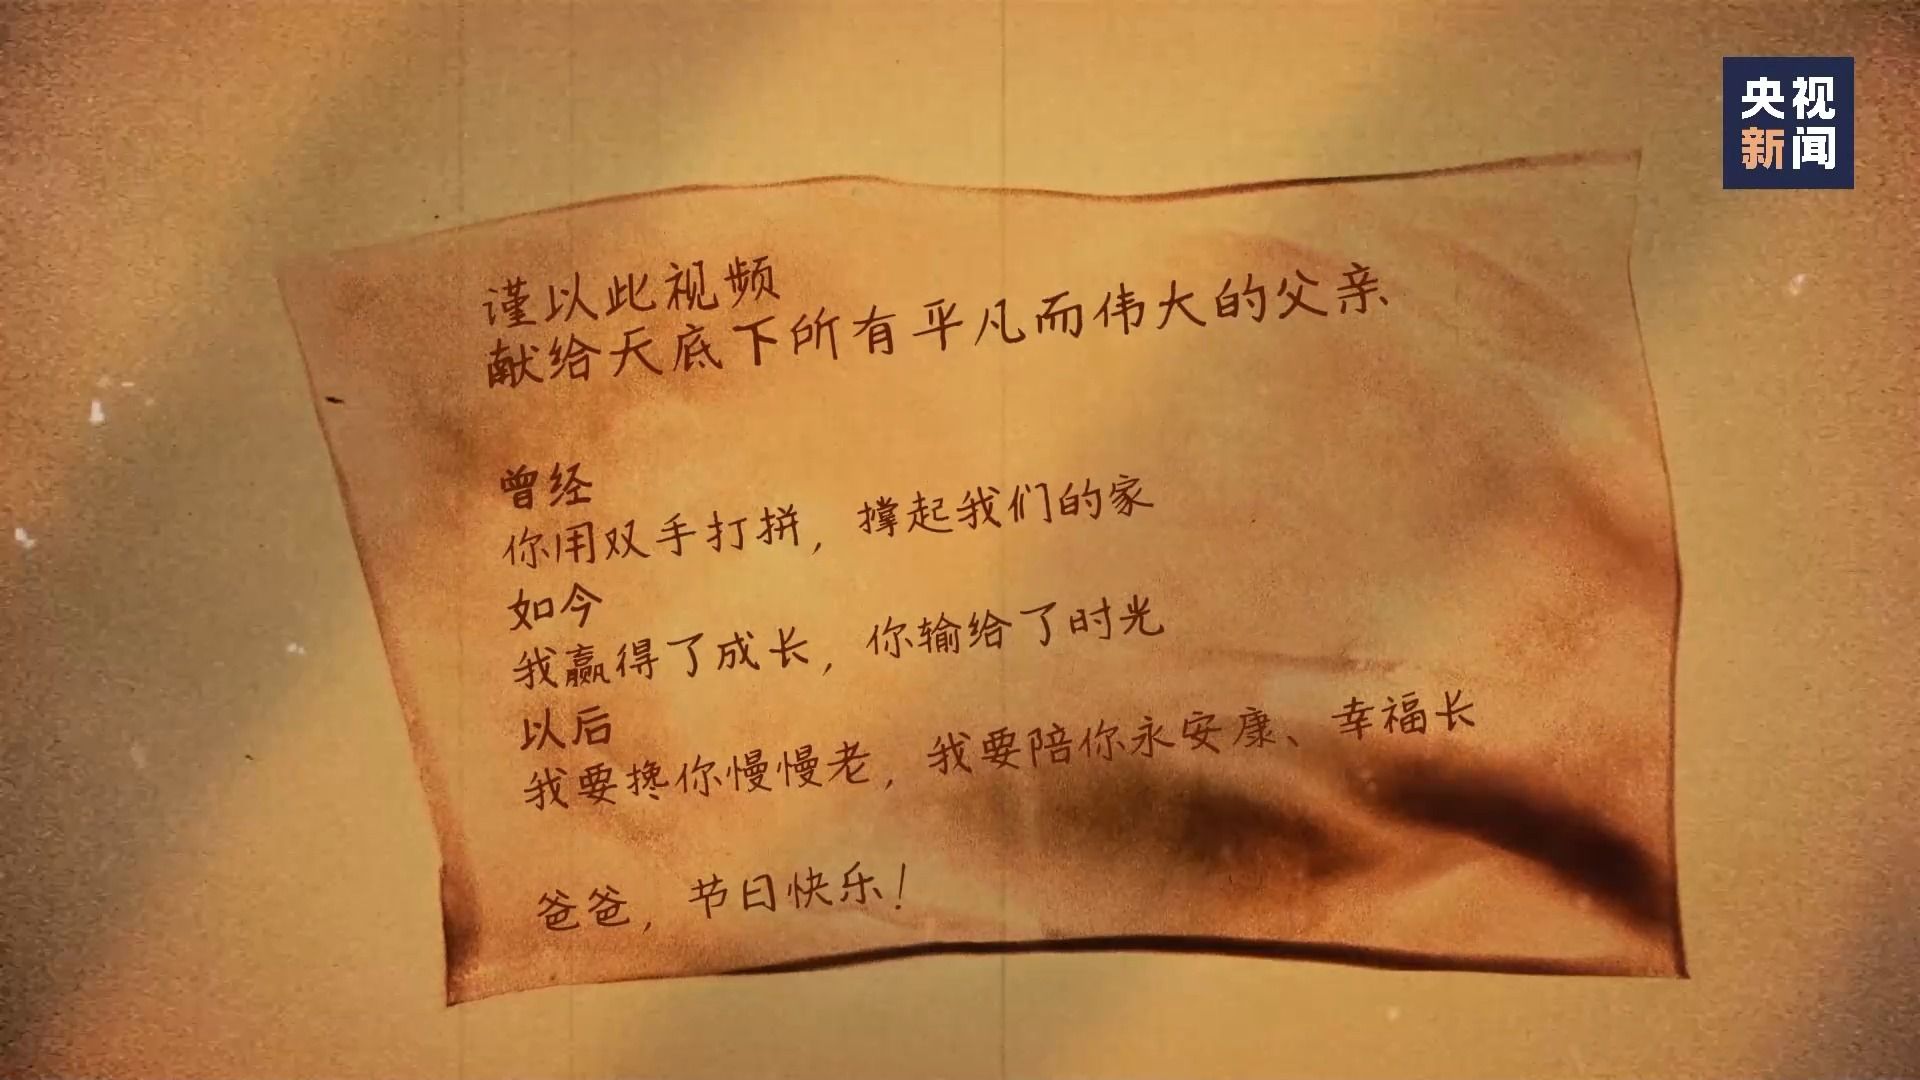 央视
新闻
谨以此视频
献给天底下所有平凡而伟大的父亲
曾经
你用双手打拼，撑起我们的家
如今
我赢得了成长，你输给了时光
以后
我要搀你慢慢老，我要陪你永安康、幸福长
爸爸，节日快乐！